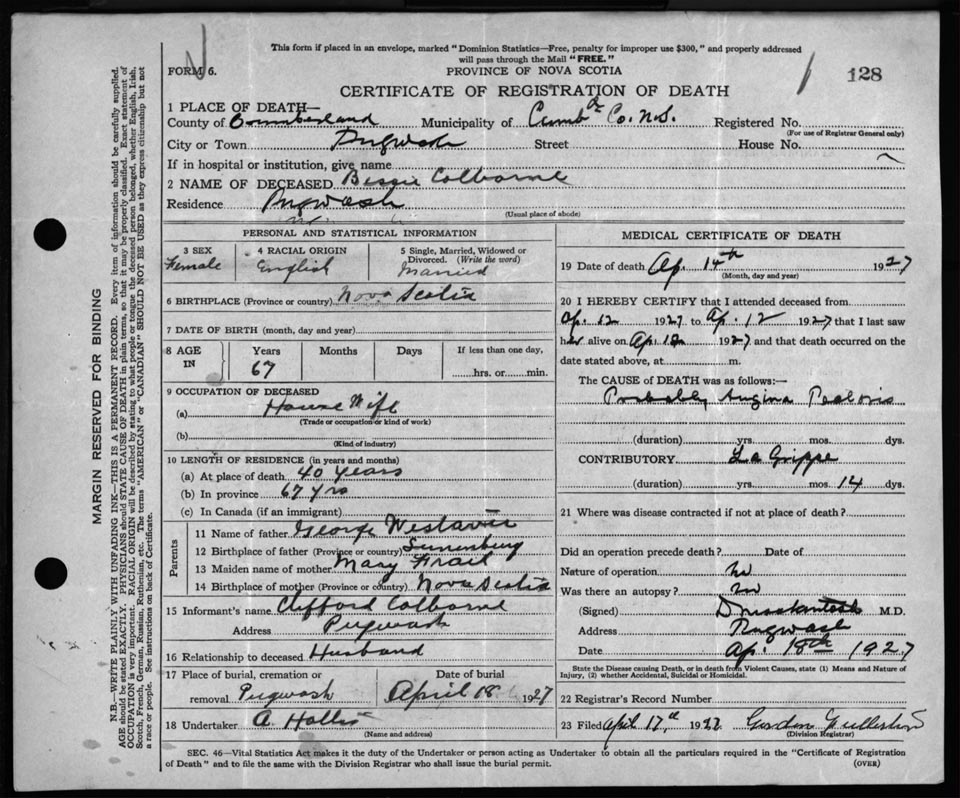 This form if placed in an envelope, marked "Dominion Statistics—Free, penalty for improper use $300," and properly addressed
will pass through the Mail "FREE."
FORM 6.
PROVINCE OF NOVA SCOTIA
128
CERTIFICATE OF REGISTRATION OF DEATH
1 PLACE OF DEATH—
County of Cumberland Municipality of Cumb Co. N.S. Registered No.
(For use of Registrar General only)
City or Town Pugwash Street House No.
If in hospital or institution, give name
2 NAME OF DECEASED Bessie Colborne
Residence Pugwash
(Usual place of abode)
PERSONAL AND STATISTICAL INFORMATION
3 SEX Female
4 RACIAL ORIGIN English
5 Single, Married, Widowed or
Divorced. (Write the word)
Married
6 BIRTHPLACE (Province or country) Nova Scotia
7 DATE OF BIRTH (month, day and year)
8 AGE IN Years Months Days If less than one day,
67 hrs. or min.
9 OCCUPATION OF DECEASED
(a) House Wife
(Trade or occupation or kind of work)
(b)
(Kind of industry)
10 LENGTH OF RESIDENCE (in years and months)
(a) At place of death 40 years
(b) In province 67 yrs
(c) In Canada (if an immigrant)
Parents
11 Name of father George
12 Birthplace of father (Province or country) Lunenburg
13 Maiden name of mother Mary
14 Birthplace of mother (Province or country) Nova Scotia
15 Informant's name Clifford Colborne
Address Pugwash
16 Relationship to deceased Husband
17 Place of burial, cremation or Date of burial
removal Pugwash April 18 1927
18 Undertaker A. Hollis
(Name and address)
MEDICAL CERTIFICATE OF DEATH
19 Date of death Ap. 14th 1927
(Month, day and year)
20 I HEREBY CERTIFY that I attended deceased from
Ap. 12 1927 to Ap. 12 1927 that I last saw
her alive on Ap. 12 1927 and that death occurred on the
date stated above, at m.
The CAUSE OF DEATH was as follows:—
Probably Angina Pectoris
(duration) yrs. mos. dys.
CONTRIBUTORY La Grippe
(duration) yrs. mos. 14 dys.
21 Where was disease contracted if not at place of death?
Did an operation precede death? Date of
Nature of operation no
Was there an autopsy? no
(Signed) M.D.
Address Pugwash
Date Ap. 18th 1927
State the Disease causing Death, or in death from Violent Causes, state (1) Means and Nature of
Injury, (2) whether Accidental, Suicidal or Homicidal.
22 Registrar's Record Number
23 Filed April 17th 1927 Gordon
(Division Registrar)
SEC. 46—Vital Statistics Act makes it the duty of the Undertaker or person acting as Undertaker to obtain all the particulars required in the "Certificate of Registration
of Death" and to file the same with the Division Registrar who shall issue the burial permit. (OVER)
MARGIN RESERVED FOR BINDING
N.B.—WRITE PLAINLY WITH UNFADING INK—THIS IS A PERMANENT RECORD. Every item of information should be carefully supplied.
AGE should be stated EXACTLY. PHYSICIANS should STATE CAUSE OF DEATH in plain terms, so that it may be properly classified. Exact statement of
OCCUPATION is very important. RACIAL ORIGIN will be described by stating to what people or tongue the deceased person belonged, whether English, Irish,
Scotch, French, German, Russian, Ruthenian, etc. The terms "AMERICAN" or "CANADIAN" SHOULD NOT BE USED as they express citizenship but not
a race or people. See instructions on back of Certificate.